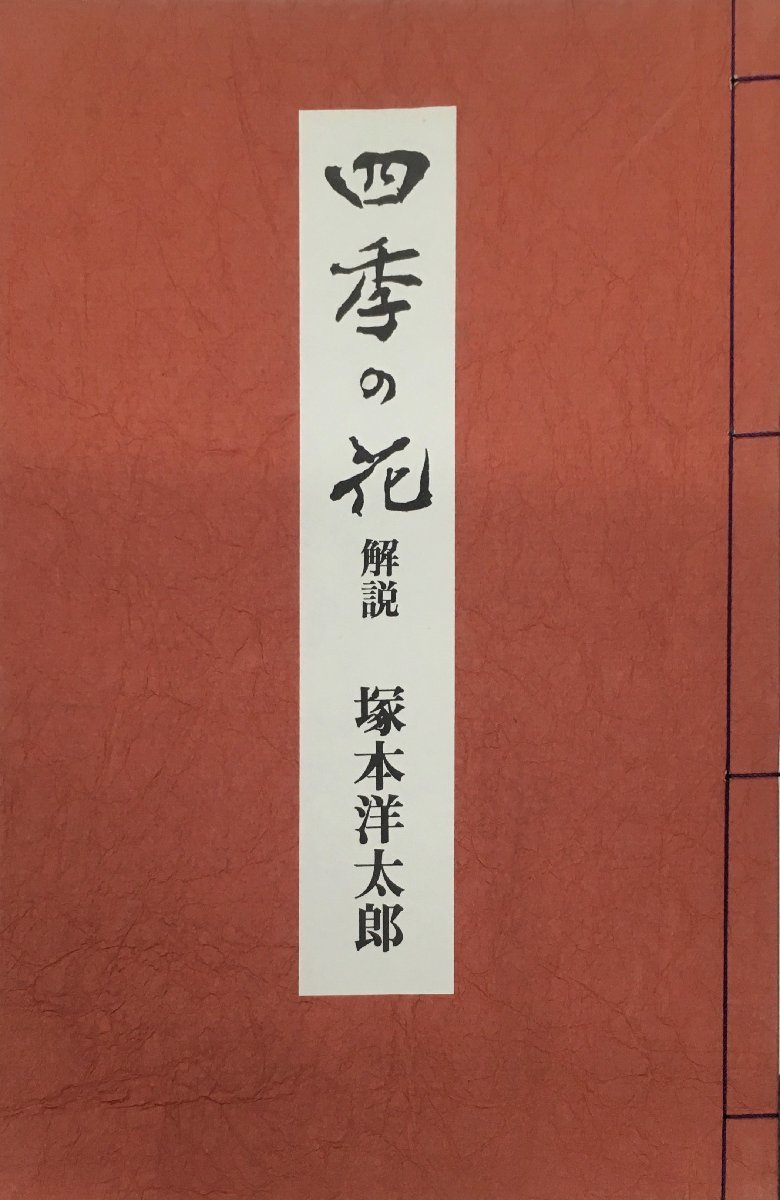 四季の花 解説 塚本洋太郎